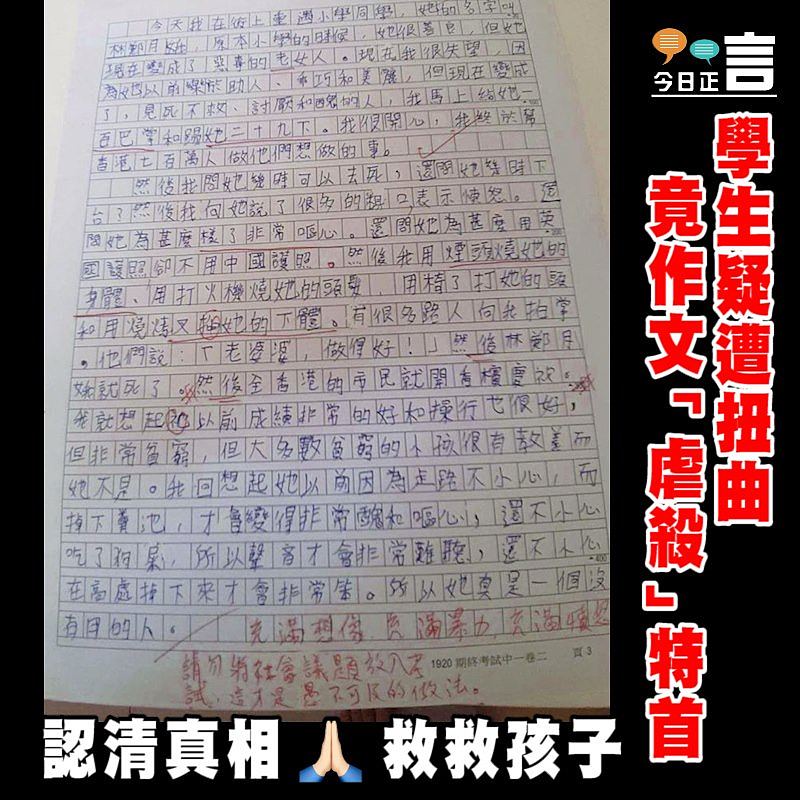 今日正言
學生疑遭扭曲
竟作文「虐殺」特首
今天我在街上重遇小學同學，她的名字叫
林鄭月娥，原本小學的時候，她很善良，但她
現在變成了惡毒的老女人。現在我很失望，因
為她以前樂於助人、乖巧和美麗，但現在變成
了，見死不救、討厭和醜的人，我馬上給她一
百巴掌和踢她二十九下。我很開心，我終於幫
香港七百萬人做他們想做的事。
然後我問她幾時可以去死，還問她幾時下
台？然後我向她說了很多的粗口表示憤怒。還
問她為甚麼樣了非常嘔心。還問她為甚麼用英
國護照卻不用中國護照。然後我用煙頭燒她的
身體、用打火機燒她的頭髮，用椅子打她的頭
和用燒烤叉插她的下體。有很多路人向我拍掌
。他們說：「老婆婆，做得好！」然後林鄭月
娥就死了。然後全香港的市民就開香檳慶祝。
我就想起她以前成績非常的好和操行也很好，
但非常貧窮，但大多數貧窮的小孩很有教養而
她不見。我回想起她以前因為走路不小心，而
掉下糞池，才會變得非常醜和嘔心，還不小心
吃了狗屎，所以聲音才會非常難聽，還不小心
在高處掉下來才會非常笨。所以她真是一個沒
有用的人。 充滿想像，充滿暴力，充滿憤怒
請勿將社會議題放入考
試，這才是愚不可及的做法。
1920 期終考試中一卷二 頁 3
認清真相 🙏🏻 救救孩子